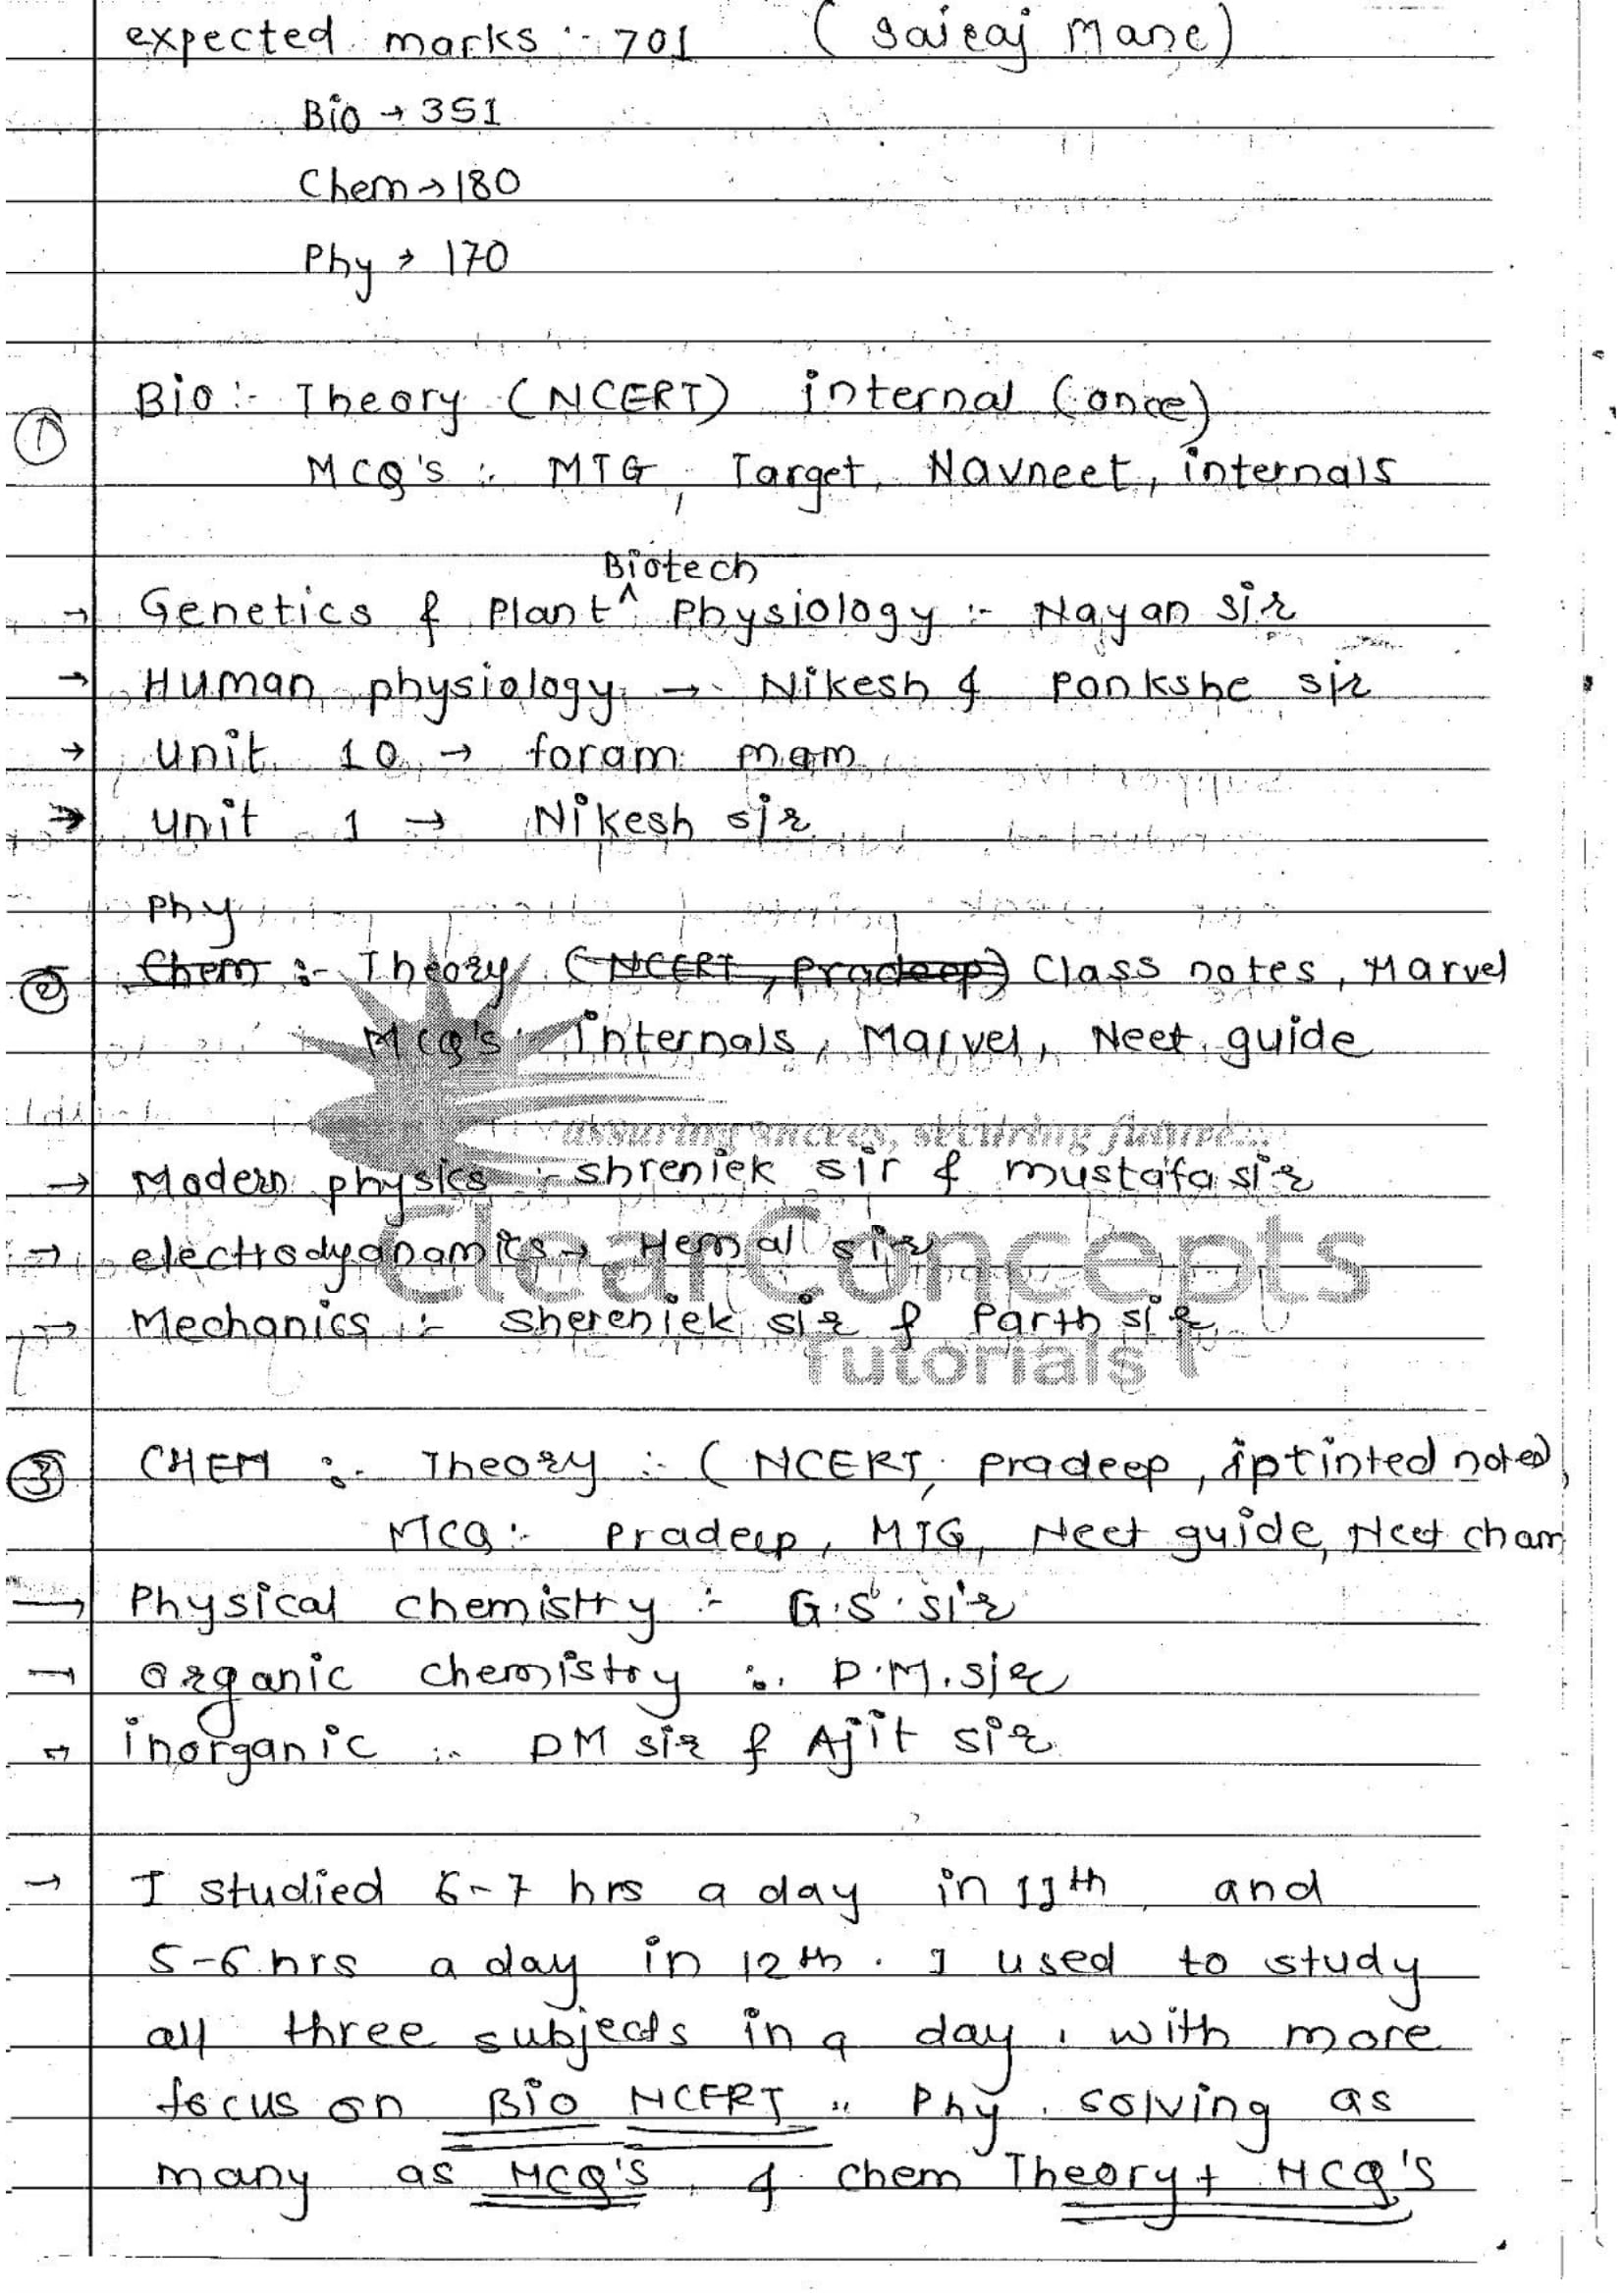 expected marks :- 701 (Sairaj Mane)
Bio → 351
Chem → 180
Phy → 170
① Bio :- Theory (NCERT) internal (once)
MCQ's :- MTG, Target, Navneet, internals
Biotech
→ Genetics & Plant ^ Physiology :- Nayan sir
→ Human physiology → Nikesh & Ponkshe sir
→ Unit 10 → foram mam
→ Unit 1 → Nikesh sir
Phy
② Chem :- Theory (NCERT, Pradeep) Class notes, Marvel
MCQ's :- Internals, Marvel, Neet guide
assuring success, securing future...
→ Modern physics :- shreniek sir & mustafa sir
→ electrodyanamics → Hemal sir
ClearConcepts
→ Mechanics :- shereniek sir & Parth sir
Tutorials
③ CHEM :- Theory :- (NCERT, pradeep, iptinted notes),
MCQ :- Pradeep, MTG, Neet guide, Neet cham
→ Physical chemistry :- G.S. sir
→ organic chemistry :- D.M. sir
→ inorganic :- DM sir & Ajit sir
→ I studied 6-7 hrs a day in 11th and
5-6 hrs a day in 12th. I used to study
all three subjects in a day, with more
focus on Bio NCERT, Phy. solving as
many as MCQ'S, & chem Theory + MCQ'S